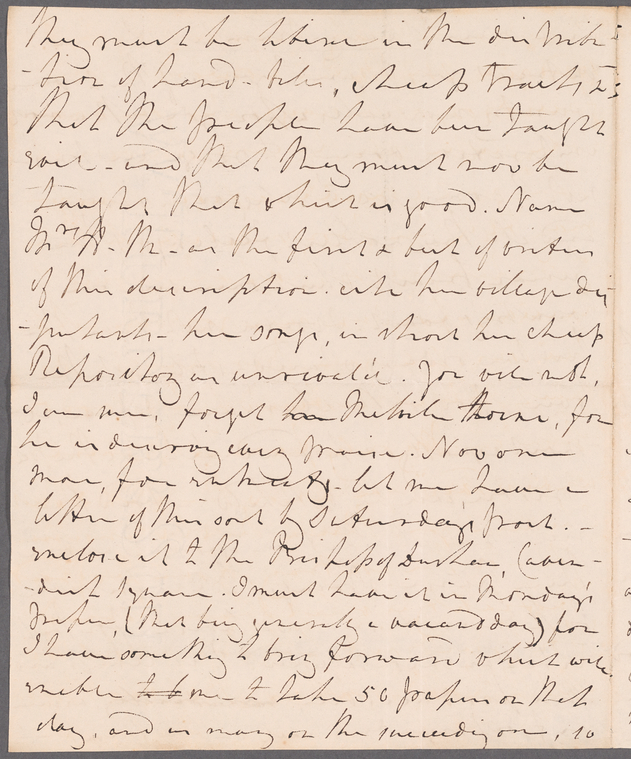 they must be liberal in the distribu
-tion of hand-bills, cheap tracts &c;
that the people have been taught
evil - and that they must now be
taught that which is good. Name
Mrs H. M. as the first & best of writers
of this description. cite her village dis
-putants - her songs, in short her cheap
Repository as unrivall'd. You will not,
I am sure, forget
for
he is deserving every praise. Now once
more, for entreaty - let me have a
letter of this sort by Saturday's post. -
enclose it to the Bishop of Durham, Caven-
-dish Square. I must have it in Monday's
paper, (that being generally a vacant day) for
I have something to bring forward which will
enable to b me - to take 50 papers on that
day, and as many on the succeeding one, so